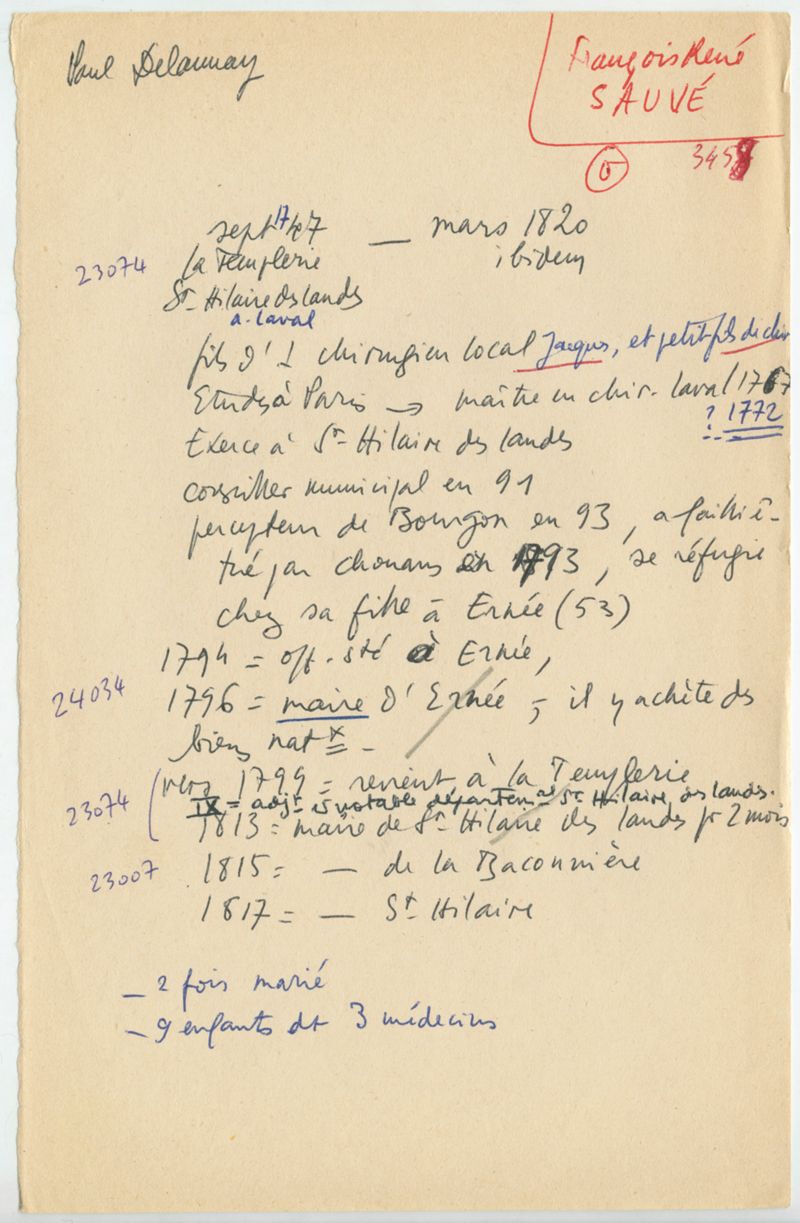 Paul Delaunay
François René
SAUVÉ
345
sept 1747 — mars 1820
23074 la Templerie ibidem
St Hilaire des landes
a. laval
fils d'1 chirurgien local Jacques, et petit fils de chir
Etudes à Paris → maître en chir. laval 1767
? 1772
Exerce à St Hilaire des landes
conseiller municipal en 91
percepteur de Bourgon en 93, a failli ê-
tué par chouans en 1793, se réfugie
chez sa fille à Ernée (53)
1794 = off. sté à Ernée,
24034 1796 = maire d'Ernée = il y achète des
biens natx -
vers 1799 = revient à la Templerie
IX = adjt et notable départemal St Hilaire des landes.
23074 1813 = maire de St Hilaire des landes pr 2 mois
23007 1815 = — de la Baconnière
1817 = — St Hilaire
— 2 fois marié
— 9 enfants dt 3 médecins